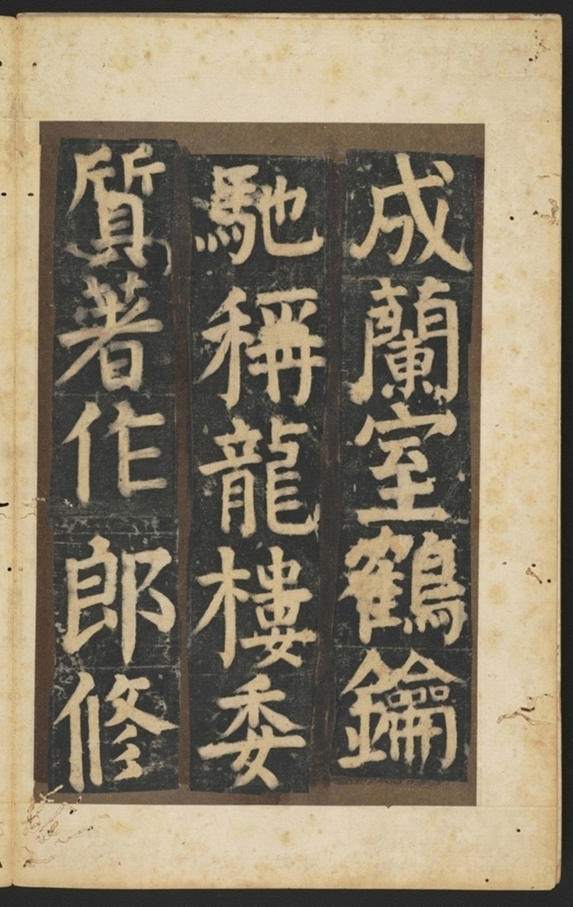 成蘭室鶴鑰
馳稱龍樓委
質著作郎修